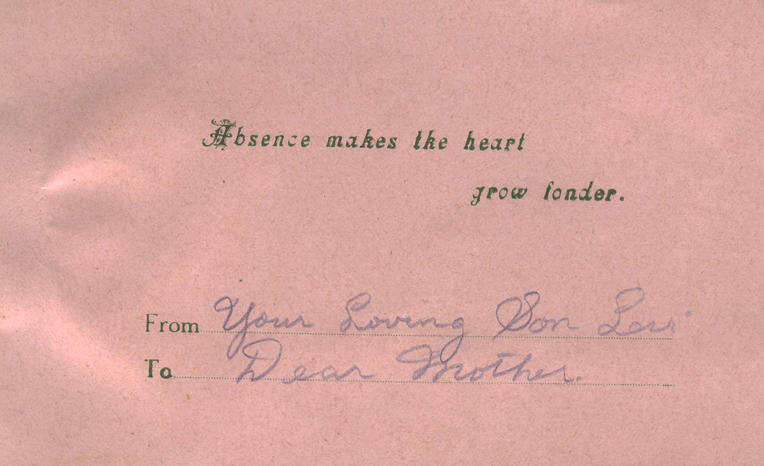 Absence makes the heart
grow fonder.
From Your Loving Son Levi
To Dear Mother.